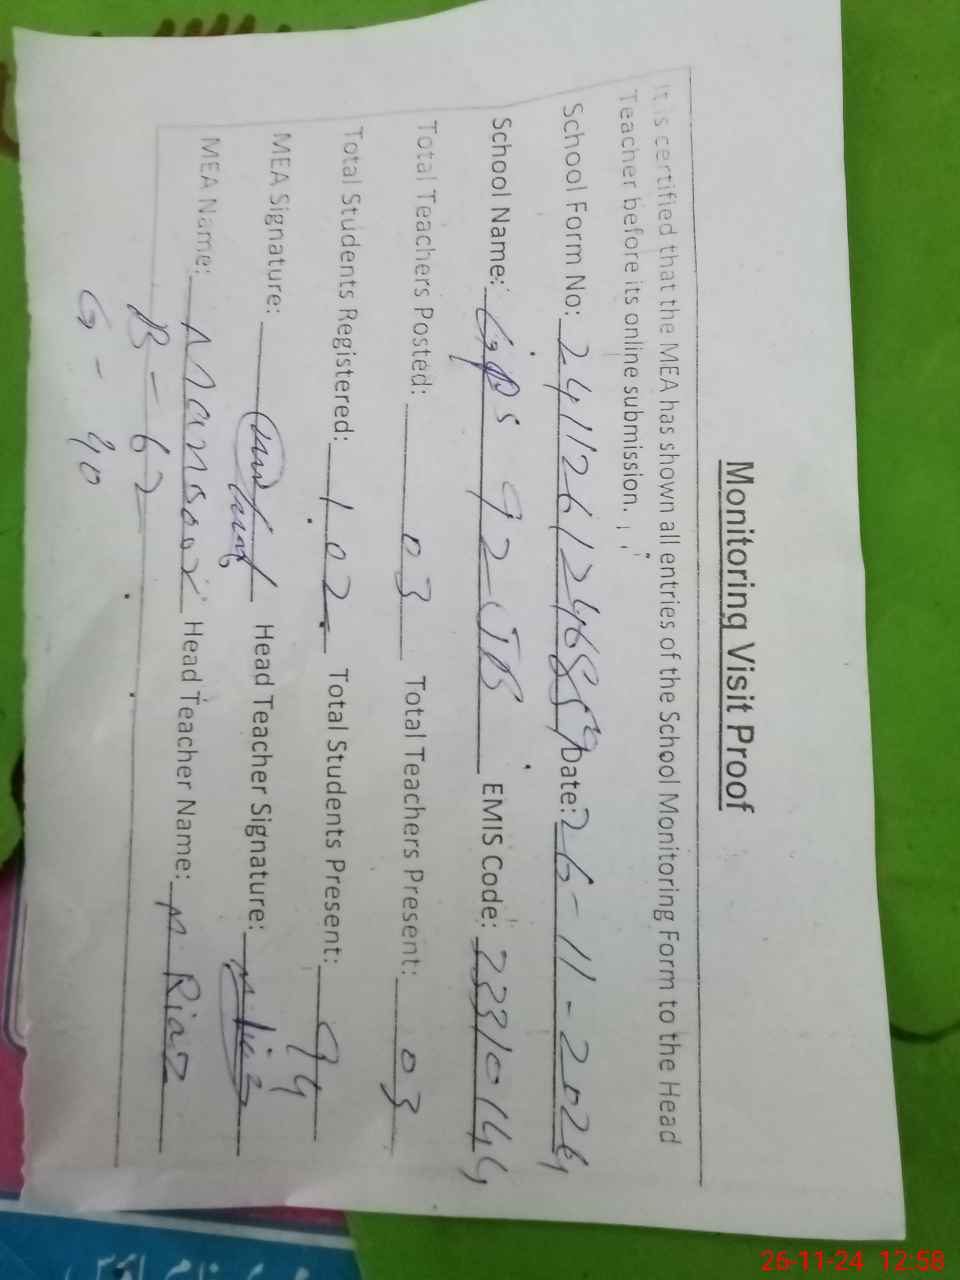 Monitoring Visit Proof
It is certified that the MEA has shown all entries of the School Monitoring Form to the Head
Teacher before its online submission.
School Form No: Date: 26-11-2024
School Name: GPS 92-JB EMIS Code: 33310144
Total Teachers Posted: 03 Total Teachers Present: 03
Total Students Registered: 102 Total Students Present: 94
MEA Signature: Head Teacher Signature:
MEA Name: Mansoor Head Teacher Name: M. Riaz
B - 62
G - 40
26-11-24 12:58